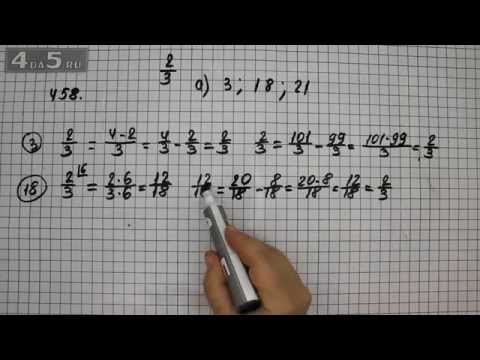 4 DA 5.RU
2/3
458. а) 3; 18; 21
③ 2/3 = (4-2)/3 = 4/3 - 2/3 = 2/3 2/3 = 101/3 - 99/3 = (101-99)/3 = 2/3
⑱ 2/3 |6 = (2·6)/(3·6) = 12/18 12/18 = 20/18 - 8/18 = (20-8)/18 = 12/18 = 2/3